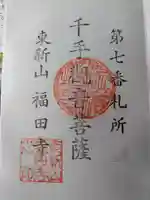 第七番札所
千手観音菩薩
東新山 福田寺